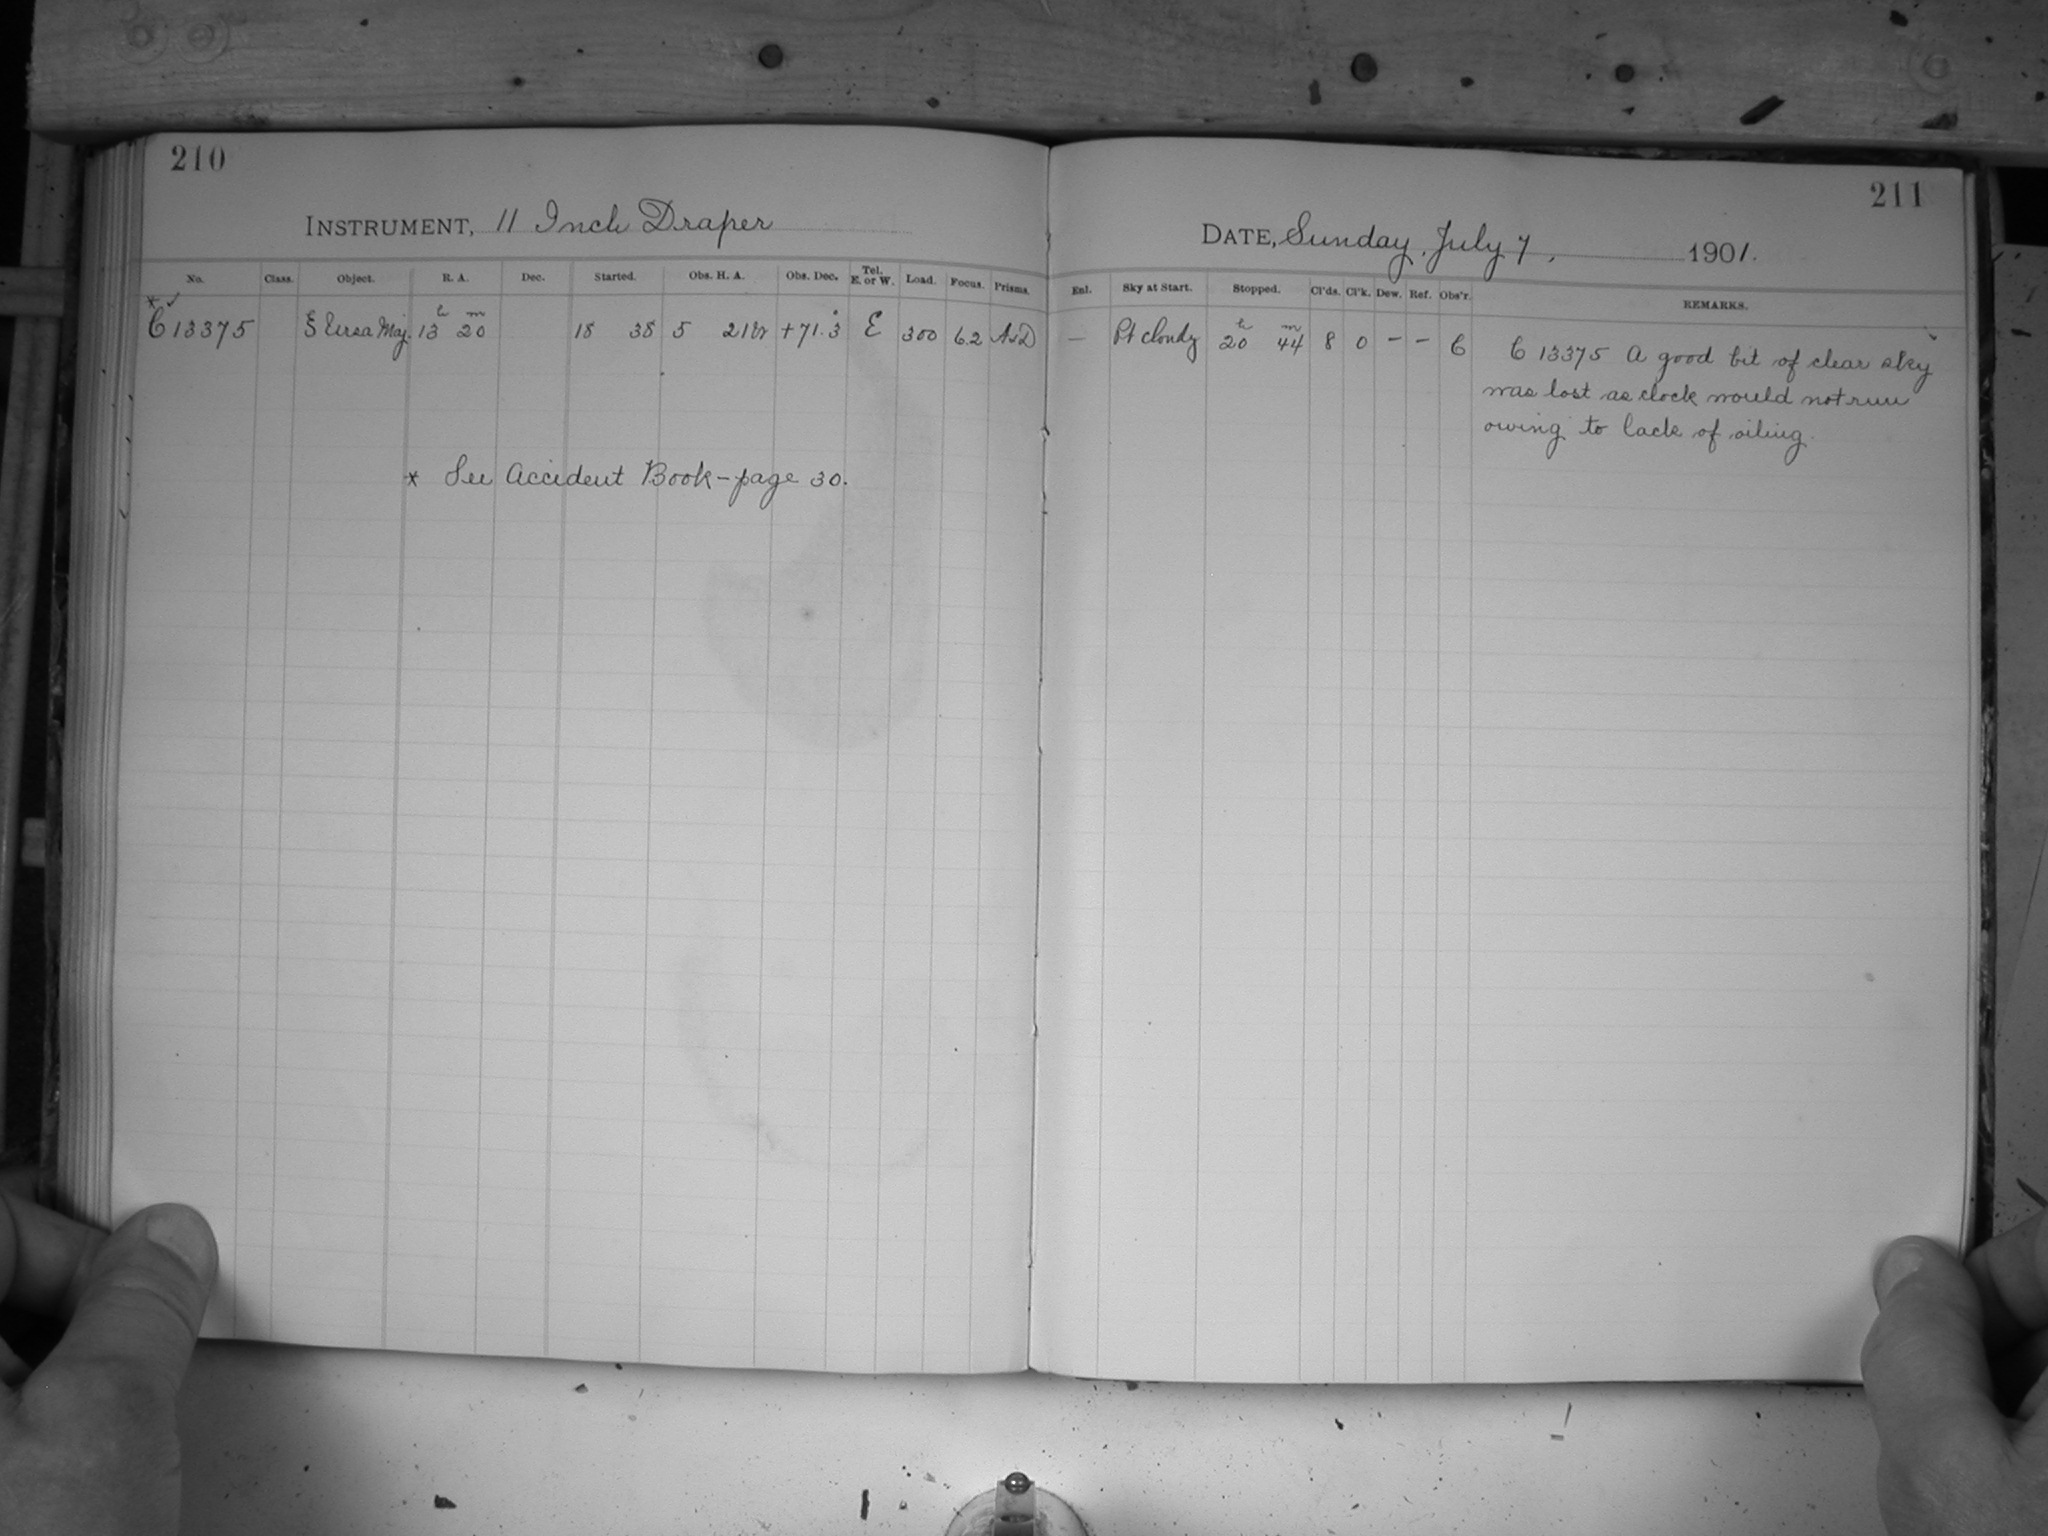 210
INSTRUMENT, 11 Inch Draper
No. Class. Object. R. A. Dec. Started. Obs. H. A. Obs. Dec. Tel. E. or W. Load. Focus. Prisms.
* ✓
C 13375 ξ Ursa Maj. 13 h 20 m 18 38 5 21 W +71.3 E 300 6.2 A&D
* See Accident Book – page 30.
211
DATE, Sunday, July 7, 1901.
Enl. Sky at Start. Stopped. Cl'ds. Cl'k. Dew. Ref. Obs'r. REMARKS.
— Pt cloudy 20 h 44 m 8 0 – – C C 13375 A good bit of clear sky
was lost as clock would not run
owing to lack of oiling.